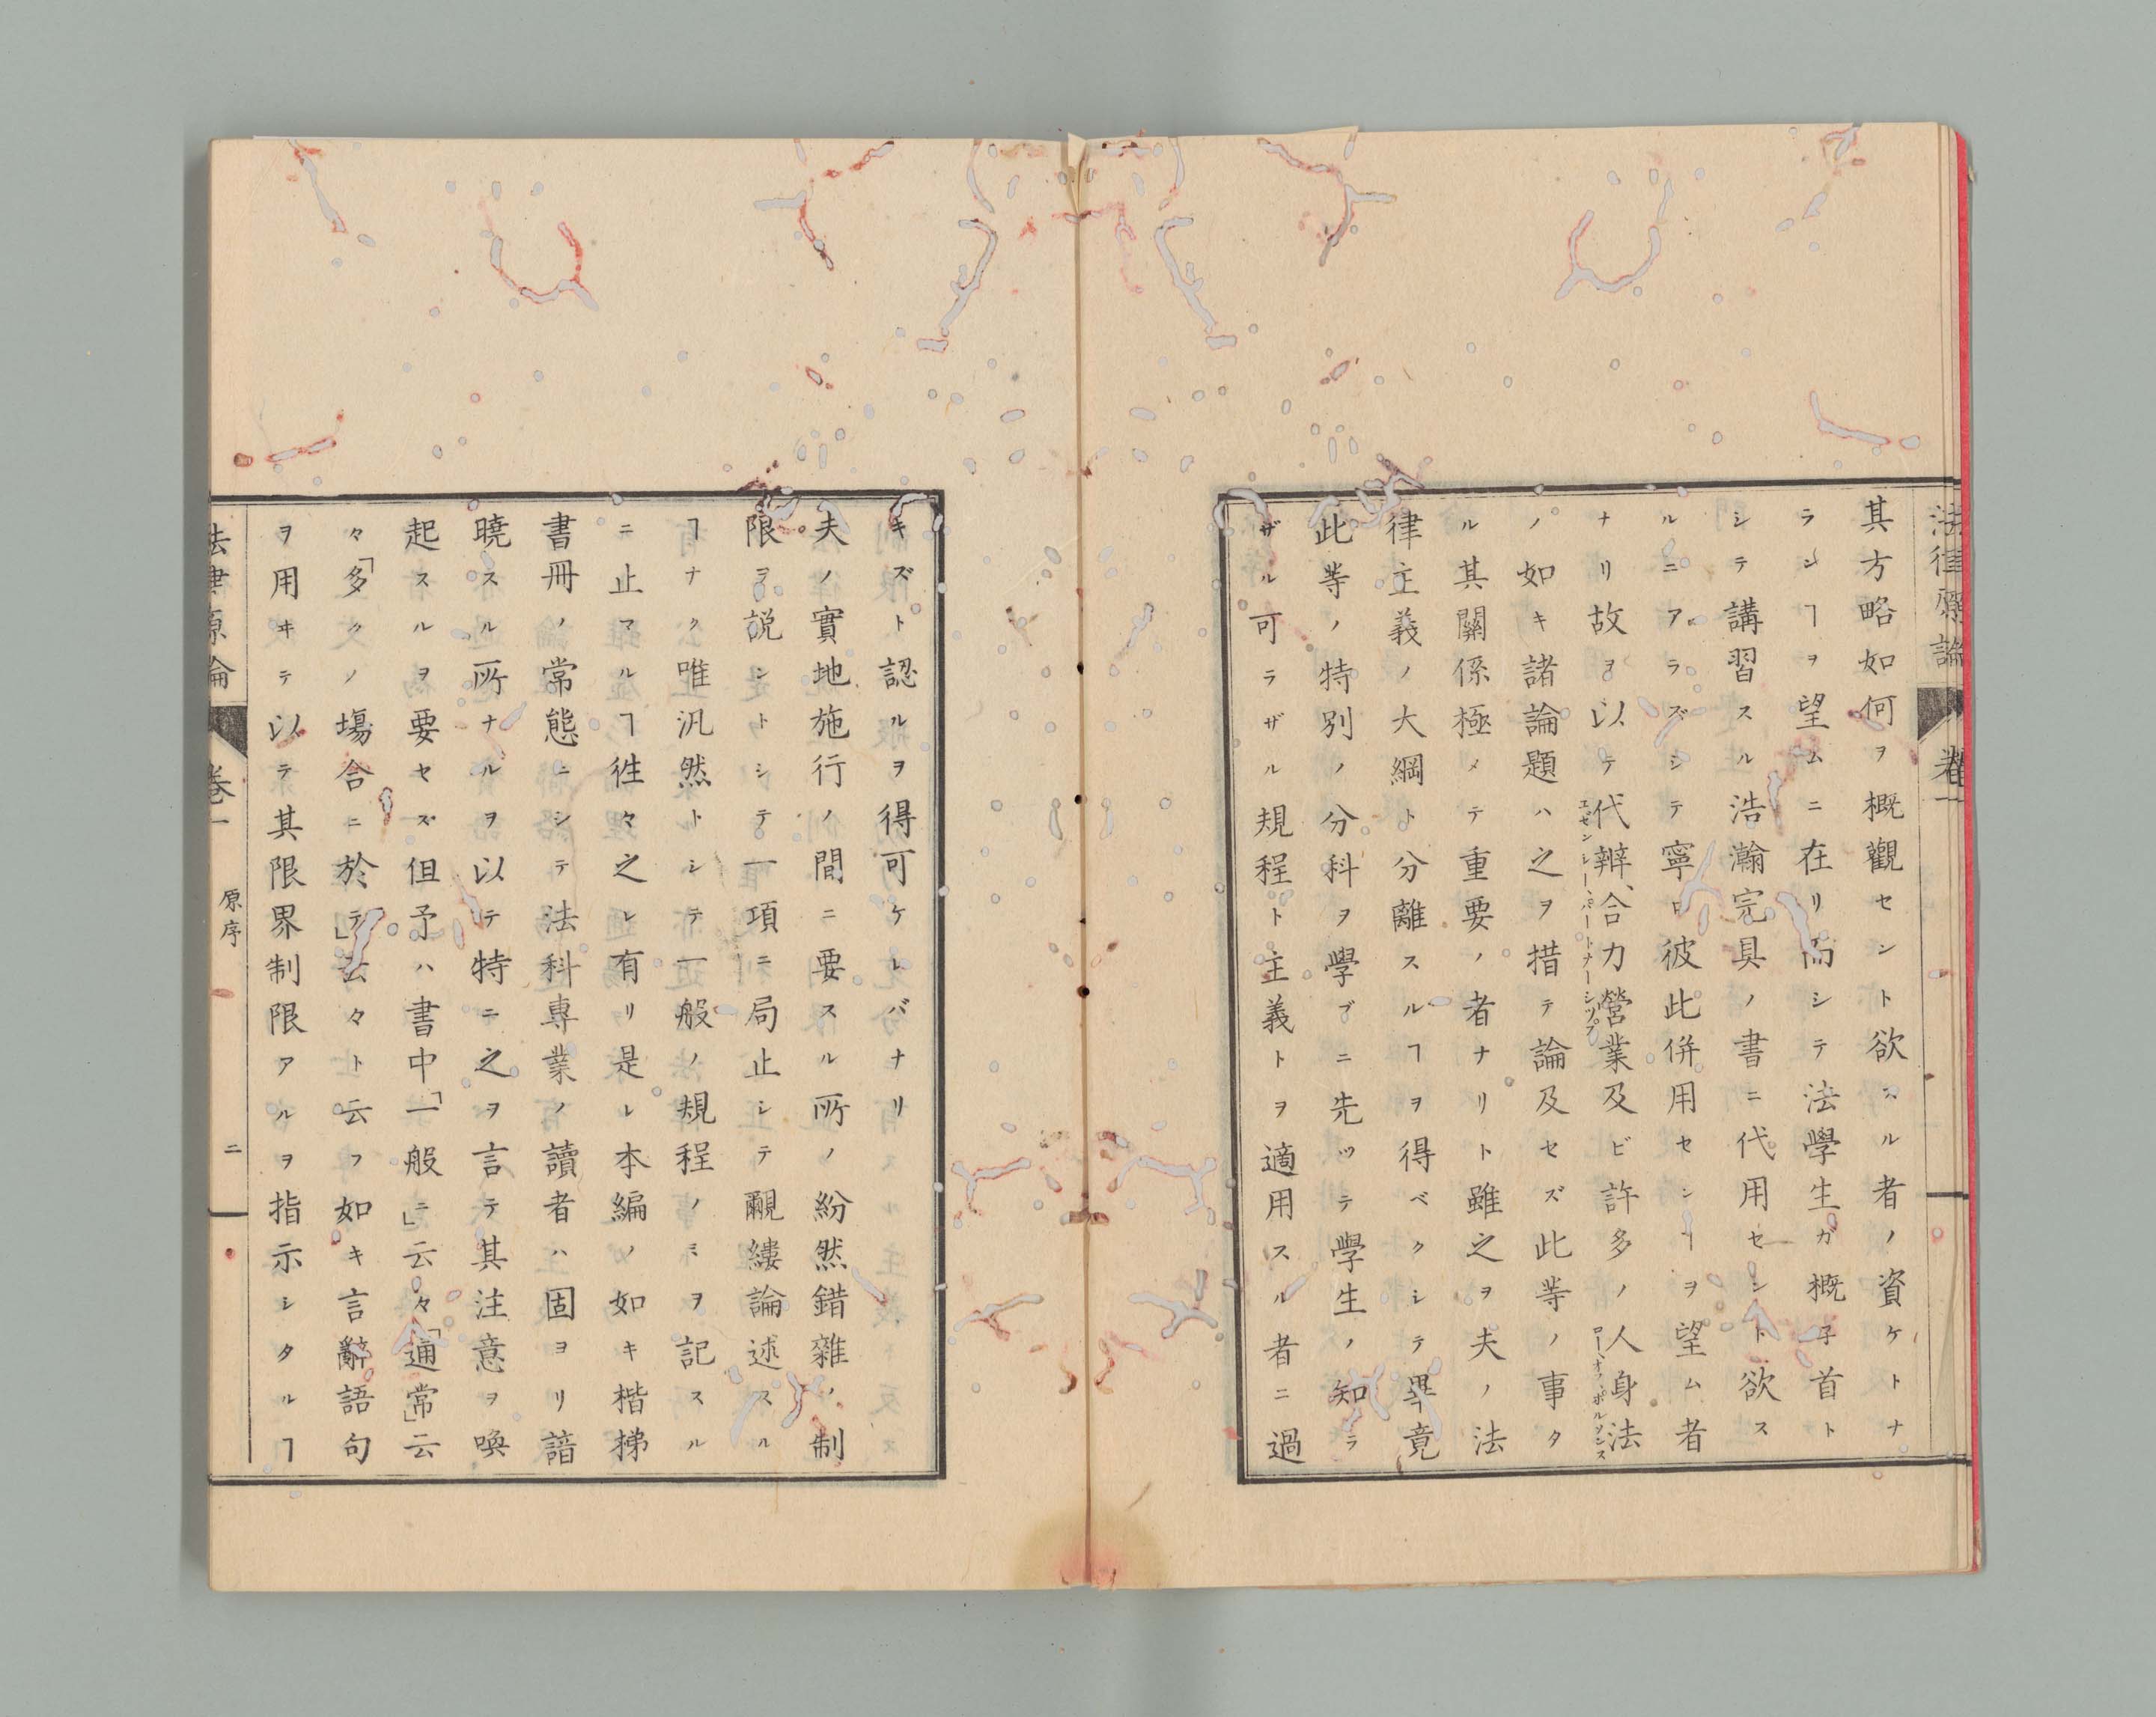 法律原論
卷一
其方略如何ヲ概觀セント欲スル者ノ資ケトナ
ランヿヲ望ムニ在リ而シテ法學生ガ概子首ト
シテ講習スル浩瀚完具ノ書ニ代用セント欲ス
ルニアラズシテ寧ロ彼此併用センヿヲ望ム者
ナリ故ヲ以テ代辨、合力營業及ビ許多ノ人身法
エゼンシー、パートナーシップ
ロー、オフ、ポルソンス
ノ如キ諸論題ハ之ヲ措テ論及セズ此等ノ事タ
ル其關係極メテ重要ノ者ナリト雖之ヲ夫ノ法
律主義ノ大綱ト分離スルヿヲ得ベクシテ畢竟
此等ノ特別ノ分科ヲ學ブニ先ッテ學生ノ知ラ
ザル可ラザル規程ト主義トヲ適用スル者ニ過
キズト認ルヲ得可ケレバナリ
夫ノ實地施行ノ間ニ要スル所ノ紛然錯雜ノ制
限ヲ説ントシテ一項ニ局止シテ覼縷論述スル
ヿナク唯汎然トシテ一般ノ規程ノミヲ記スル
ニ止マルヿ徃々之レ有リ是レ本編ノ如キ楷梯
書冊ノ常態ニシテ法科專業ノ讀者ハ固ヨリ諳
曉スル所ナルヲ以テ特ニ之ヲ言テ其注意ヲ喚
起スルヲ要セズ但予ハ書中「一般ニ」云々「通常」云
々「多クノ塲合ニ於テ」云々ト云フ如キ言辭語句
ヲ用ヰテ以テ其限界制限アルヲ指示シタルヿ
法律原論
卷一
原序
二